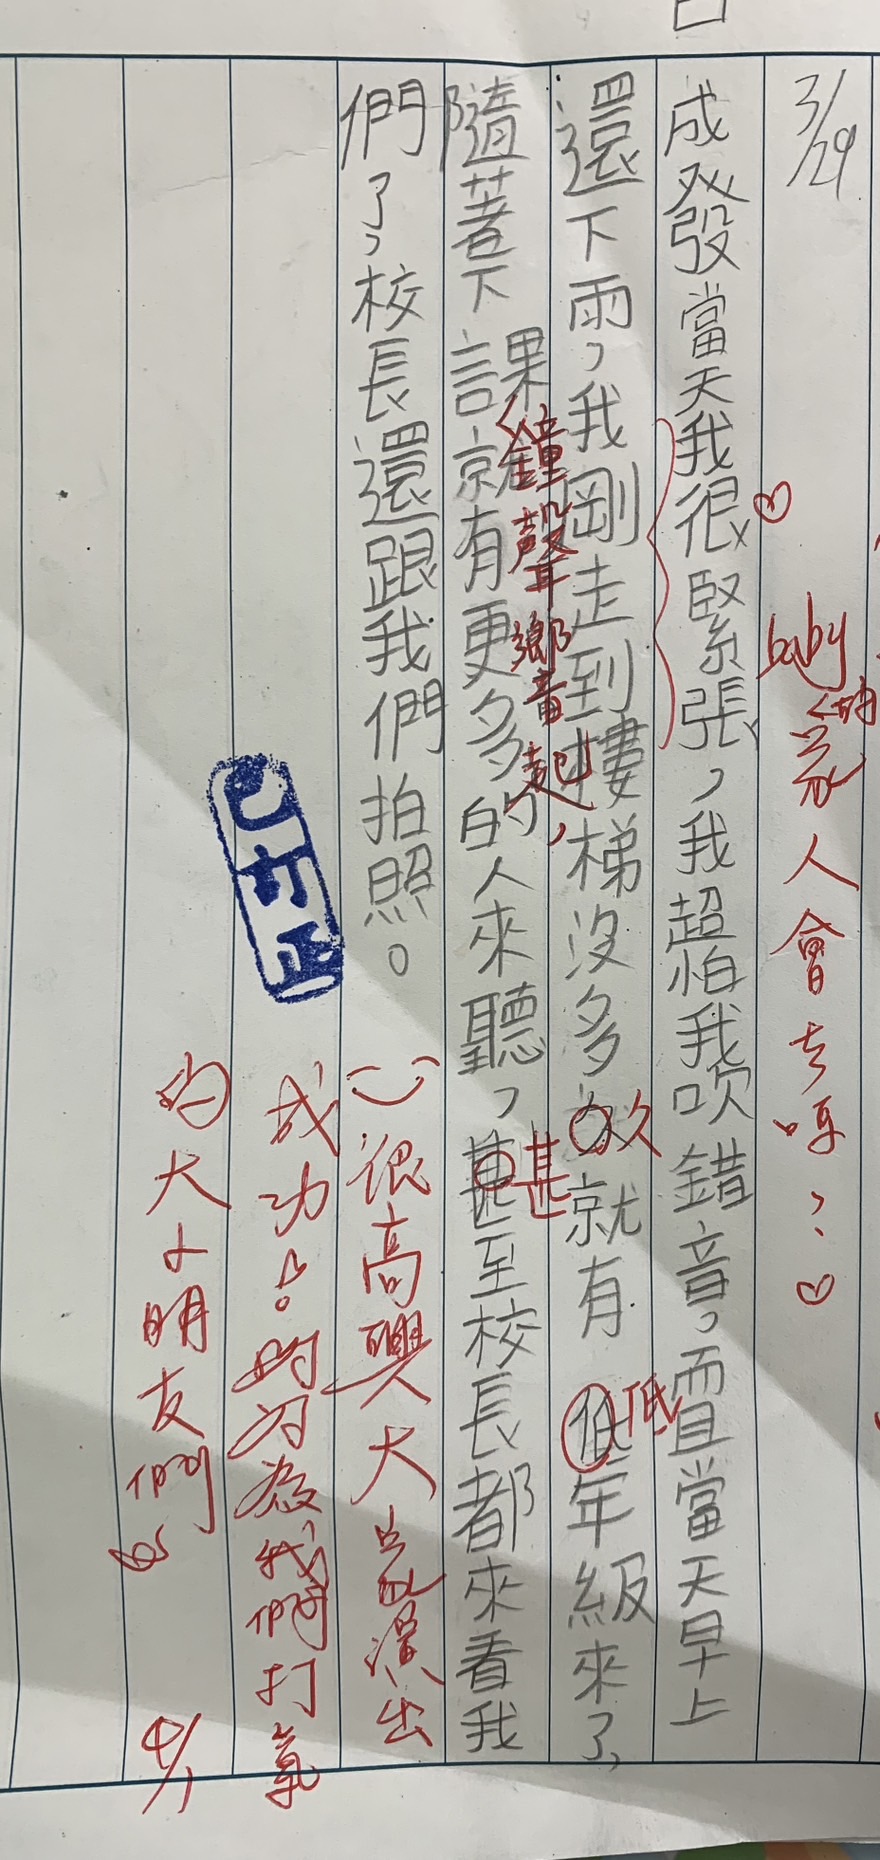 3/29
baby的家人會去嗎?♡
成發當天我很緊張，我超怕我吹錯音，而且當天早上
還下雨，我剛走到樓梯沒多久就有低年級來了，
隨著下課就有更多的人來聽，甚至校長都來看我
鐘聲響起，
久
低
甚
們了，校長還跟我們拍照。
很高興大家演出
成功!
為我們打氣
的大小朋友們
已訂正
4/1